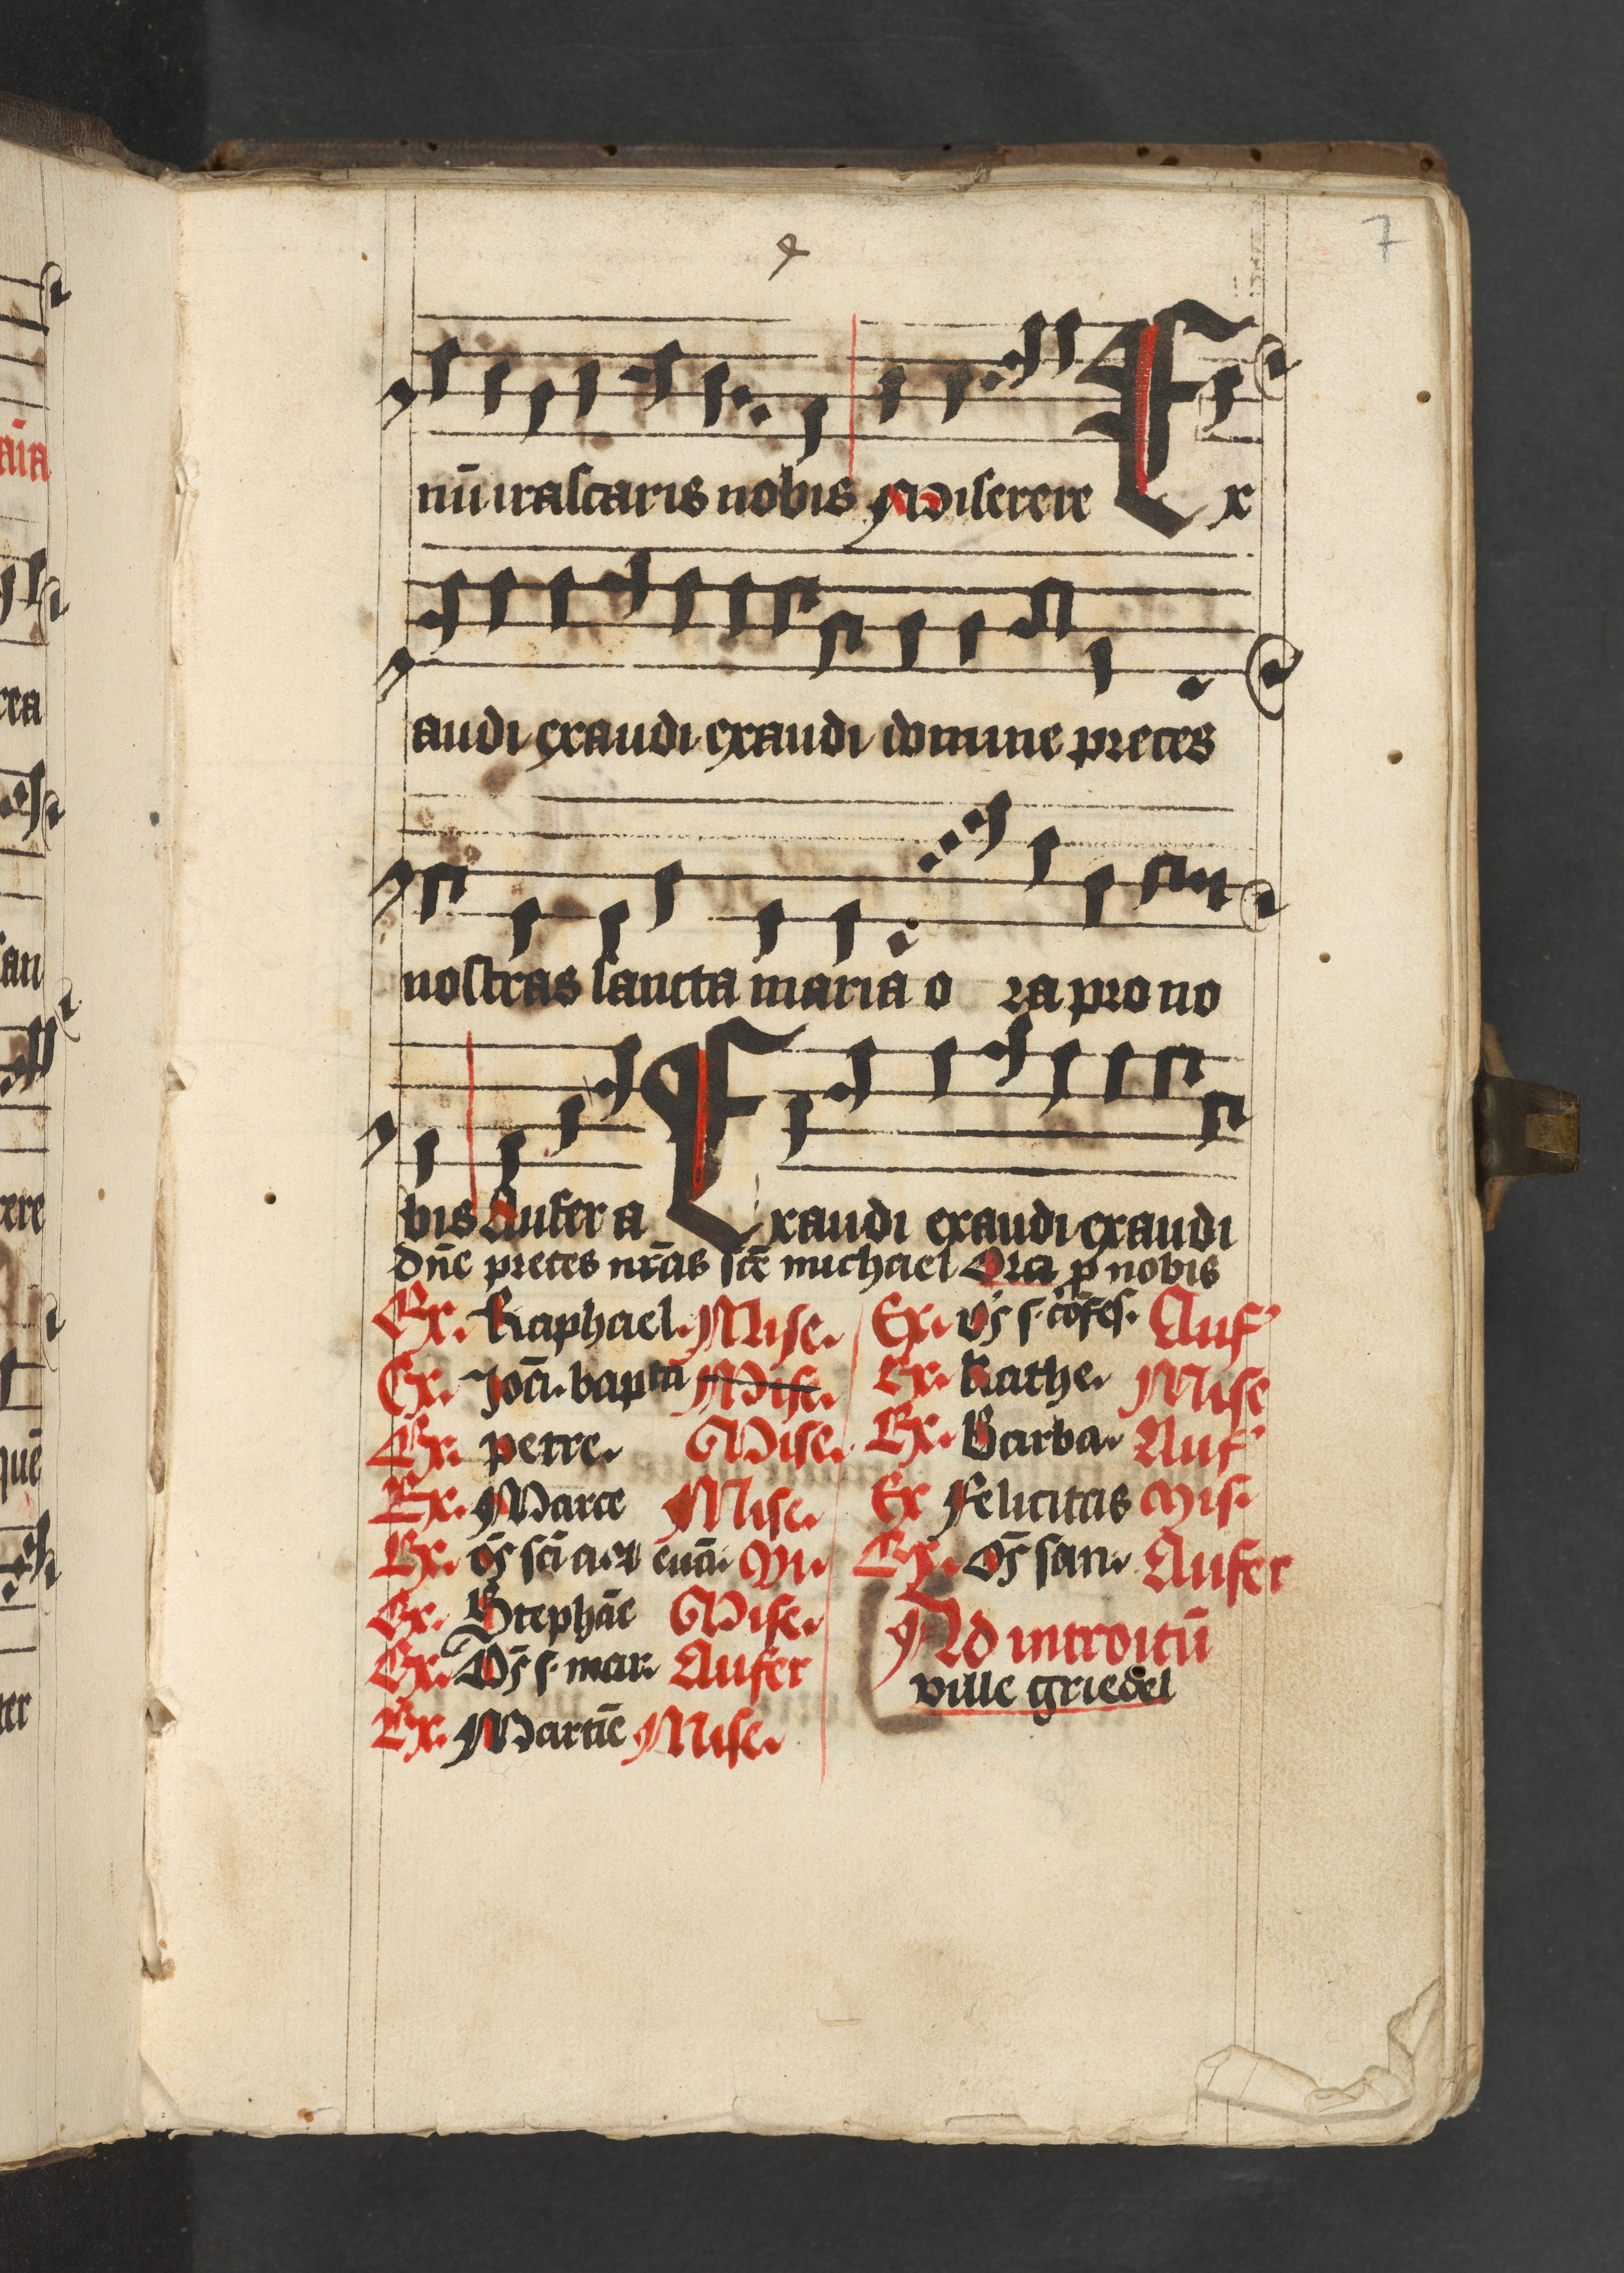 7
nū irascaris nobis Miserere Ex
audi exaudi exaudi domine preces
nostras sancta maria o ra pro no
bis Aufer a Exaudi exaudi exaudi
dn̄e preces nr̄as scē michael Ora ꝓ nobis
Ex. Raphael. Mise.
Ex. Joh̄. baptā Mise.
Ex. petre. Mise.
Ex. Marce Mise.
Ex. o͞s scī a. et eua͞. Mi.
Ex. Stephāe Mise.
Ex. O͞s s. mar. Aufer
Ex. Martīe Mise.
Ex. o͞s s. cōfes. Auf
Ex. Kathe. Mise
Ex. Barba. Auf
Ex Felicitas Mis.
Ex. o͞s san. Aufer
Ad introitū
ville griedel